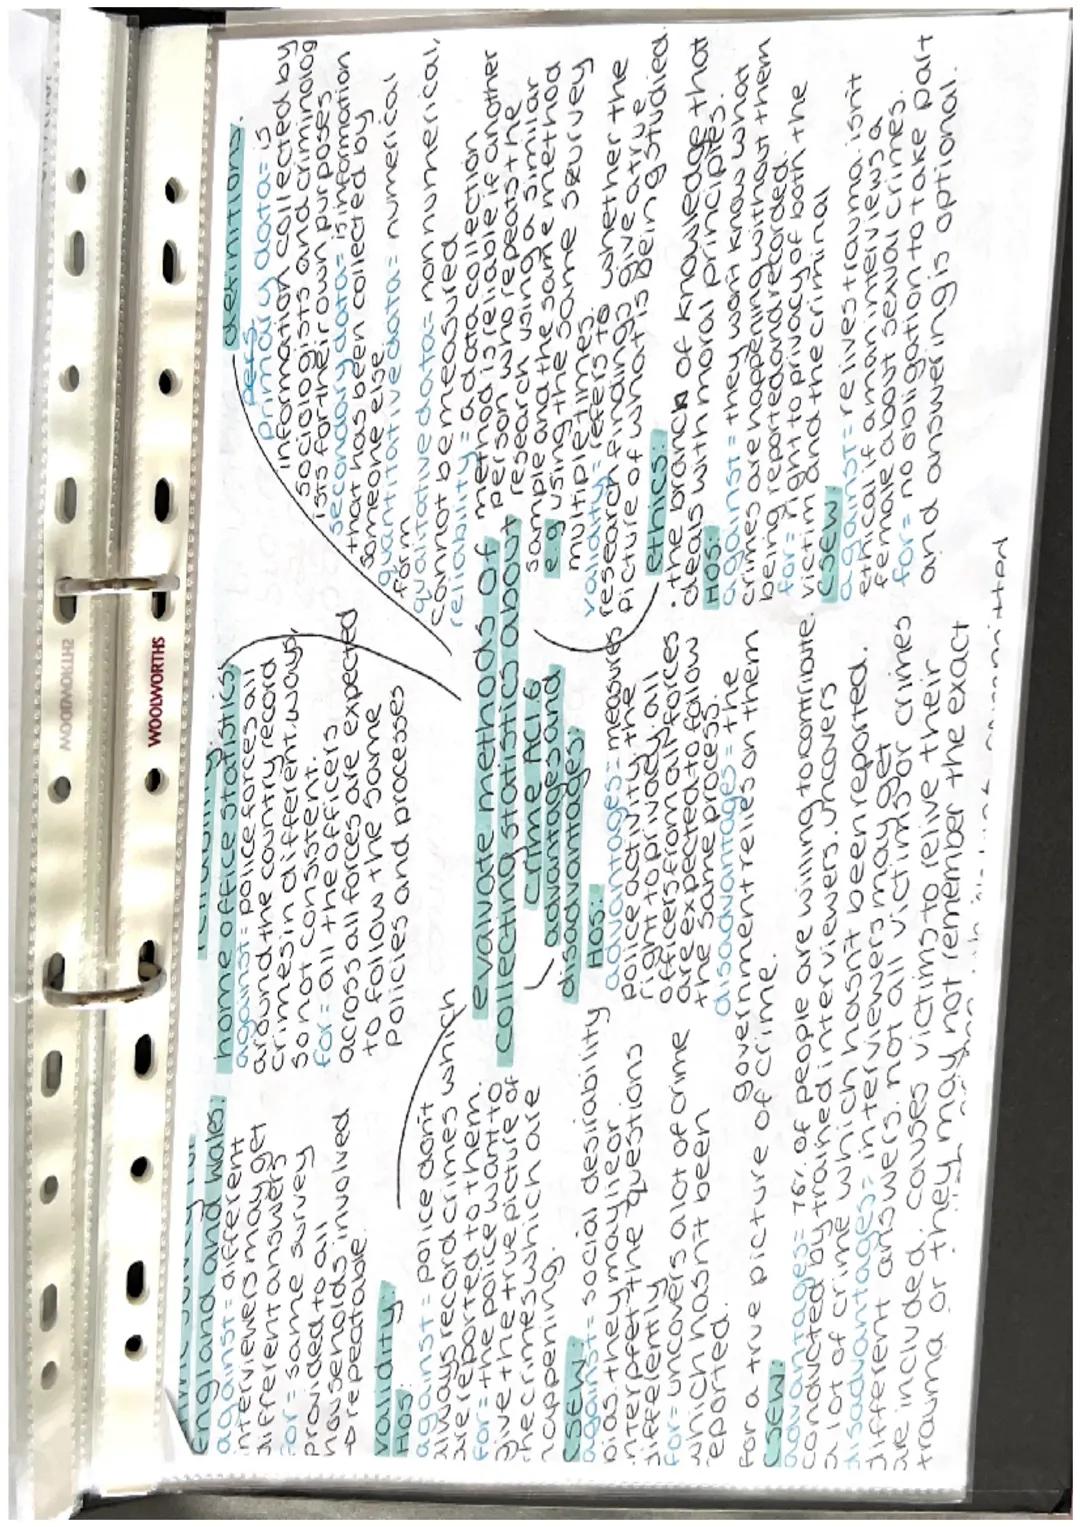 definitions:
primary data = is
information collected by
sociologists and criminolog
ists for their own purposes
secondary data = is information
that has been collected by
someone else
quantitative data = numerical
form
qualitative data = non numerical,
cannot be measured
reliability = a data collection
method is reliable if another
person who repeats the
research using a similar
sample and the same method
e.g using the same survey
multiple times
validity = refers to whether the
research findings give a true
picture of what is being studied.
ethics:
· the branch of knowledge that
deals with moral principles.
HOS:
against = they won't know what
crimes are happening without them
being reported and recorded
for = right to privacy of both the
victim and the criminal
CSEW:
against = relives trauma. isn't
ethical if a man interviews a
female about sexual crimes.
for = no obligation to take part
and answering is optional.
home office statistics
against = police forces all
around the country record
crimes in different ways,
so not consistent.
for = all the officers
across all forces are expected
to follow the same
policies and processes
evaluate methods of
collecting statistics about
crime AC1.6
advantages and
disadvantages:
HOS:
advantages = measures
police activity, the
right to privacy, all
officers from all forces
are expected to follow
the same process.
disadvantages = the
government relies on them
for a true picture of crime.
CSEW:
advantages = 76% of people are willing to contribute.
conducted by trained interviewers. uncovers
a lot of crime which hasn't been reported.
disadvantages = interviewers may get
different answers. not all victims or crimes
are included. causes victims to relive their
trauma or they may not remember the exact
england and wales:
against = different
interviewers may get
different answers
for = same survey
provided to all
households involved
repeatable.
validity:
HOS:
against = police don't
always record crimes which
are reported to them.
for = the police want to
give the true picture of
the crimes which are
happening.
CSEW:
against = social desirability
bias. they may lie or
interpret the questions
differently
for = uncovers a lot of crime
which hasn't been
reported.
WOOLWORTHS
WOOLWORTHS